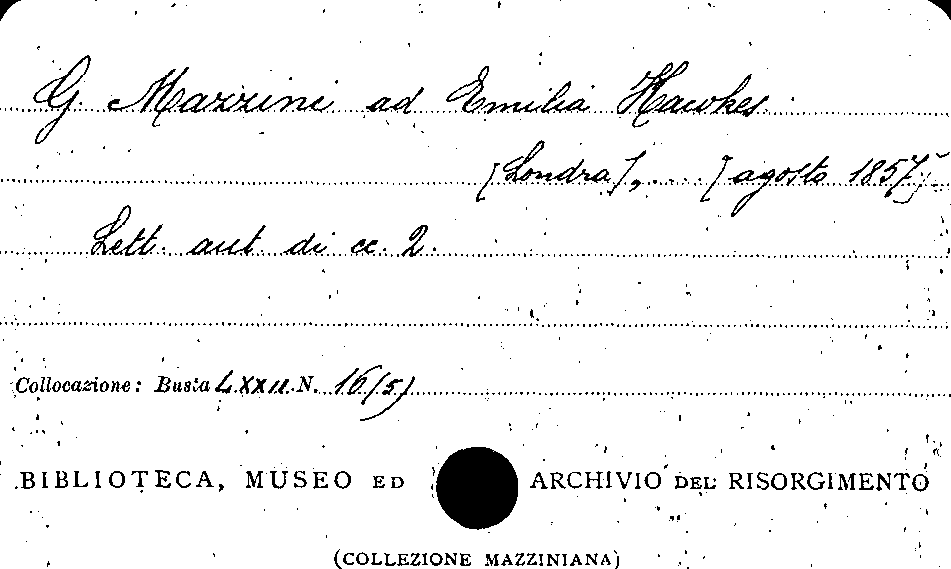 G. Mazzini ad Emilia Hawkes.
[Londra], .... [agosto 1857]
Lett. aut. di cc. 2.
Collocazione: Busta LXXII N. 16(5)
BIBLIOTECA, MUSEO ED ARCHIVIO DEL RISORGIMENTO
(COLLEZIONE MAZZINIANA)